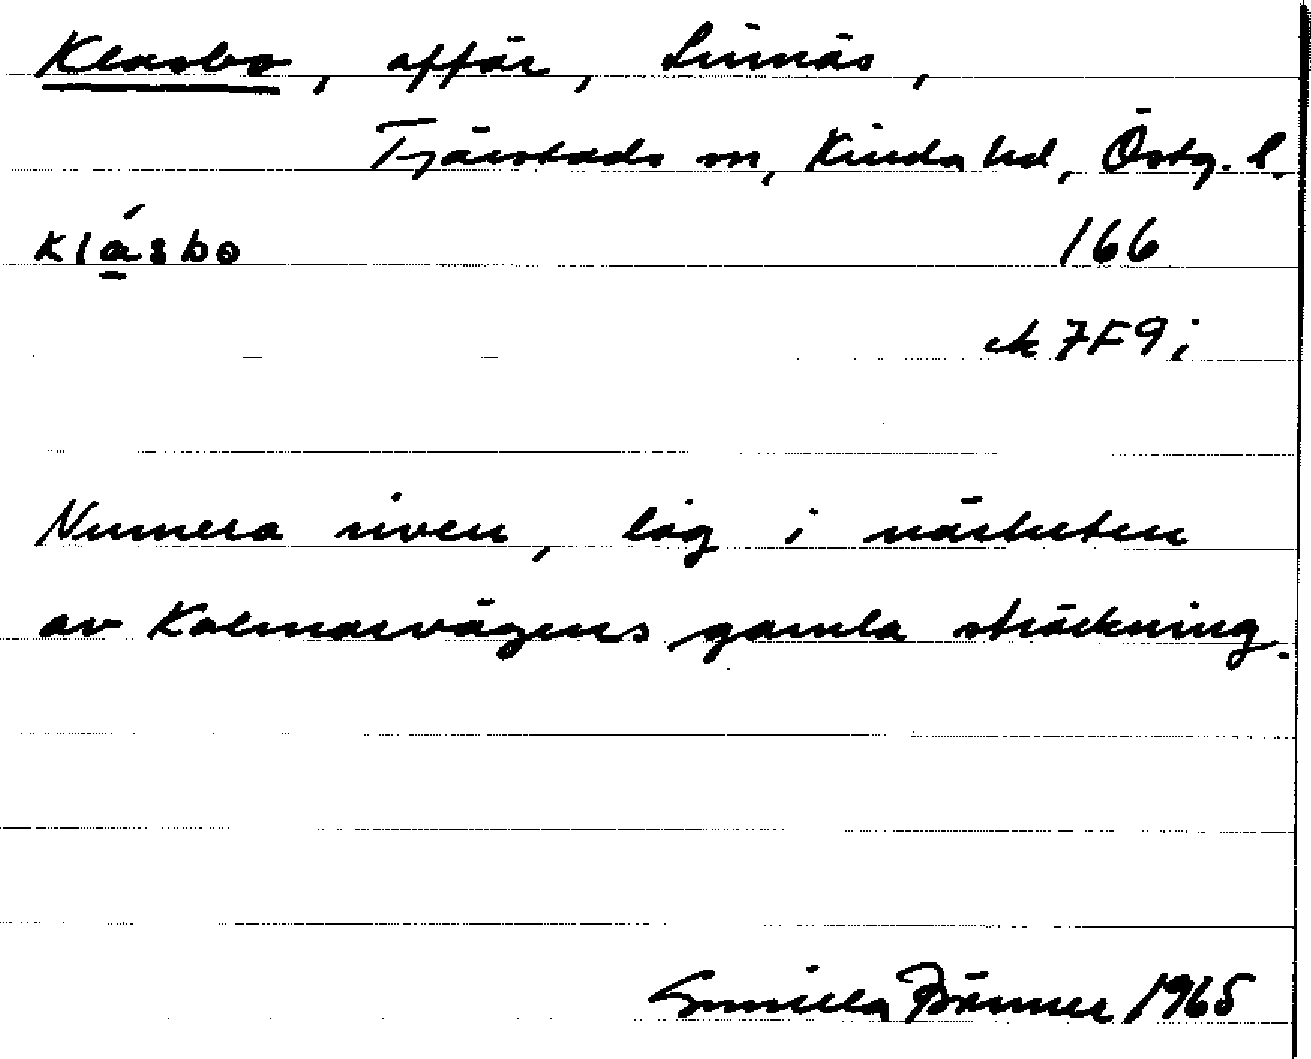 Klasbo, affär, Linnäs,
Tjärstads sn, Kinda hd, Östg. l.
klá̱sbo 166
ek 7F9i
Numera riven, låg i närheten
av Kalmarvägens gamla sträckning.
Gunilla Bänner 1965